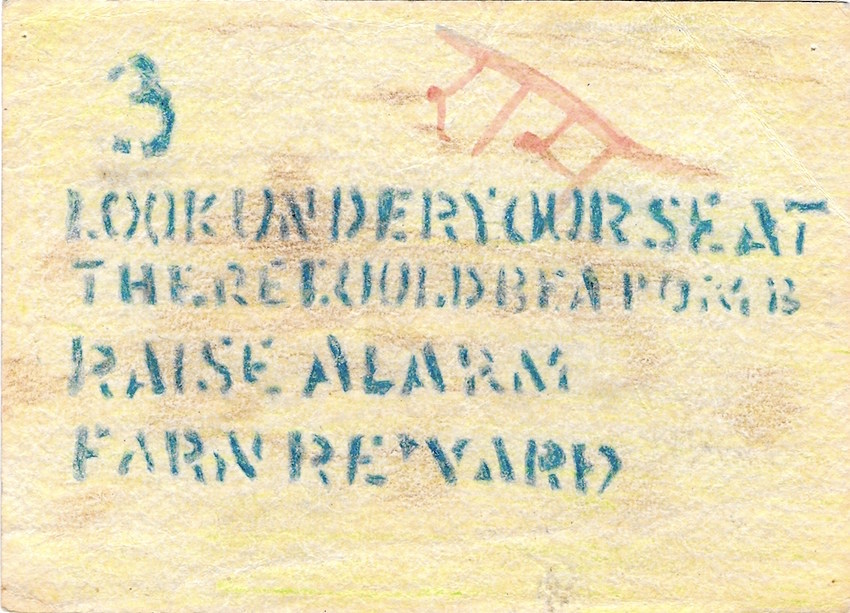 3
LOOK UNDER YOUR SEAT
THERE COULD BE A BOMB
RAISE ALARM
EARN REWARD